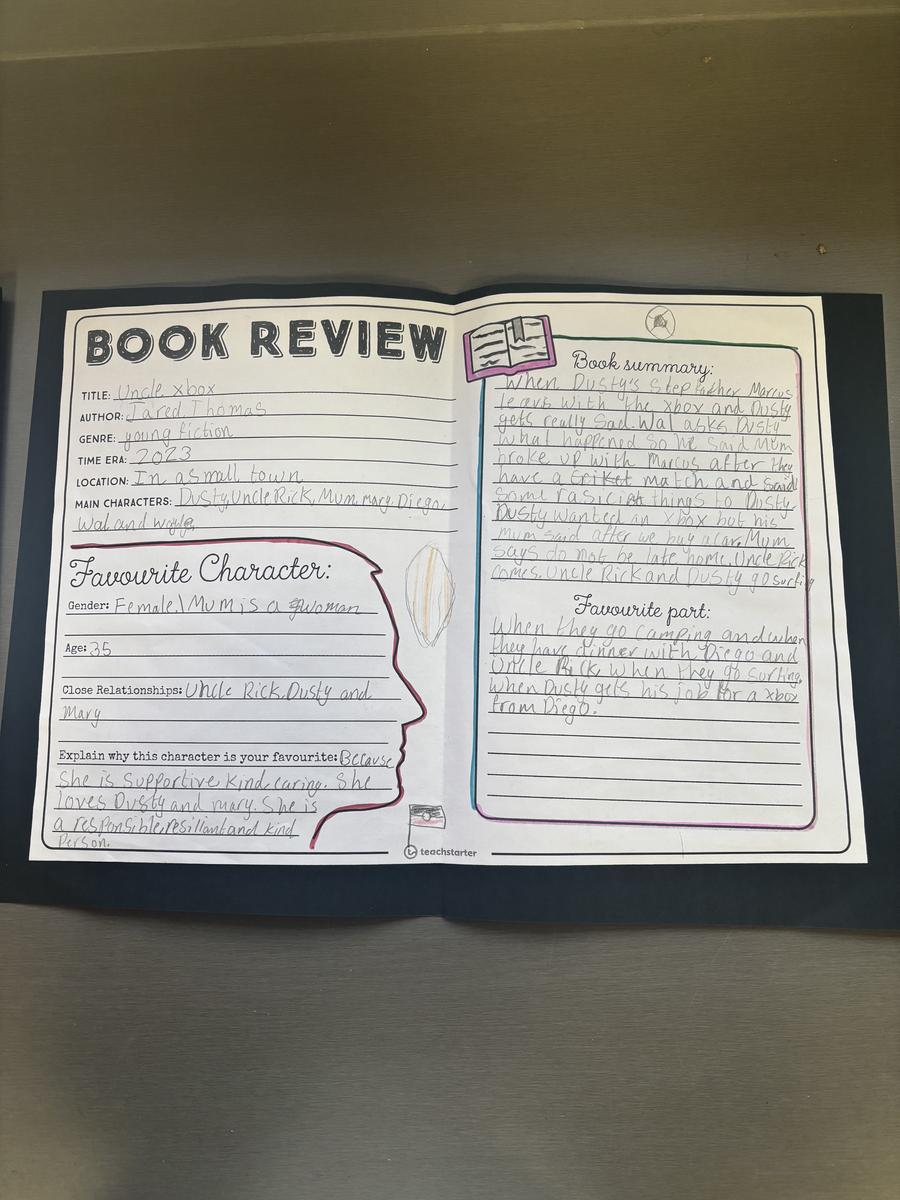 BOOK REVIEW
TITLE: Uncle xbox
AUTHOR: Jared Thomas
GENRE: young fiction
TIME ERA: 2023
LOCATION: In a small town
MAIN CHARACTERS: Dusty, Uncle Rick, Mum, mary, Diego,
Wal and
Favourite Character:
Gender: Female, Mum is a woman
Age: 35
Close Relationships: Uncle Rick, Dusty and
Mary
Explain why this character is your favourite: Because
She is supportive, kind, caring. She
loves Dusty and mary. She is
a responsible, resiliant and kind
Person.
teachstarter
Book summary:
When Dusty's Step father Marcus
leavs with the xbox and Dusty
gets really sad. Wal asks Dusty
what happened so he said Mum
broke up with Marcus after they
have a criket match and said
some rasict things to Dusty.
Dusty wanted an xbox but his
mum said after we buy a car. Mum
says do not be late home. Uncle Rick
comes. Uncle Rick and Dusty go surfing
Favourite part:
When they go camping and when
they have dinner with Diego and
Uncle Rick, when they go surfing,
when Dusty gets his job for a xbox
from Diego.